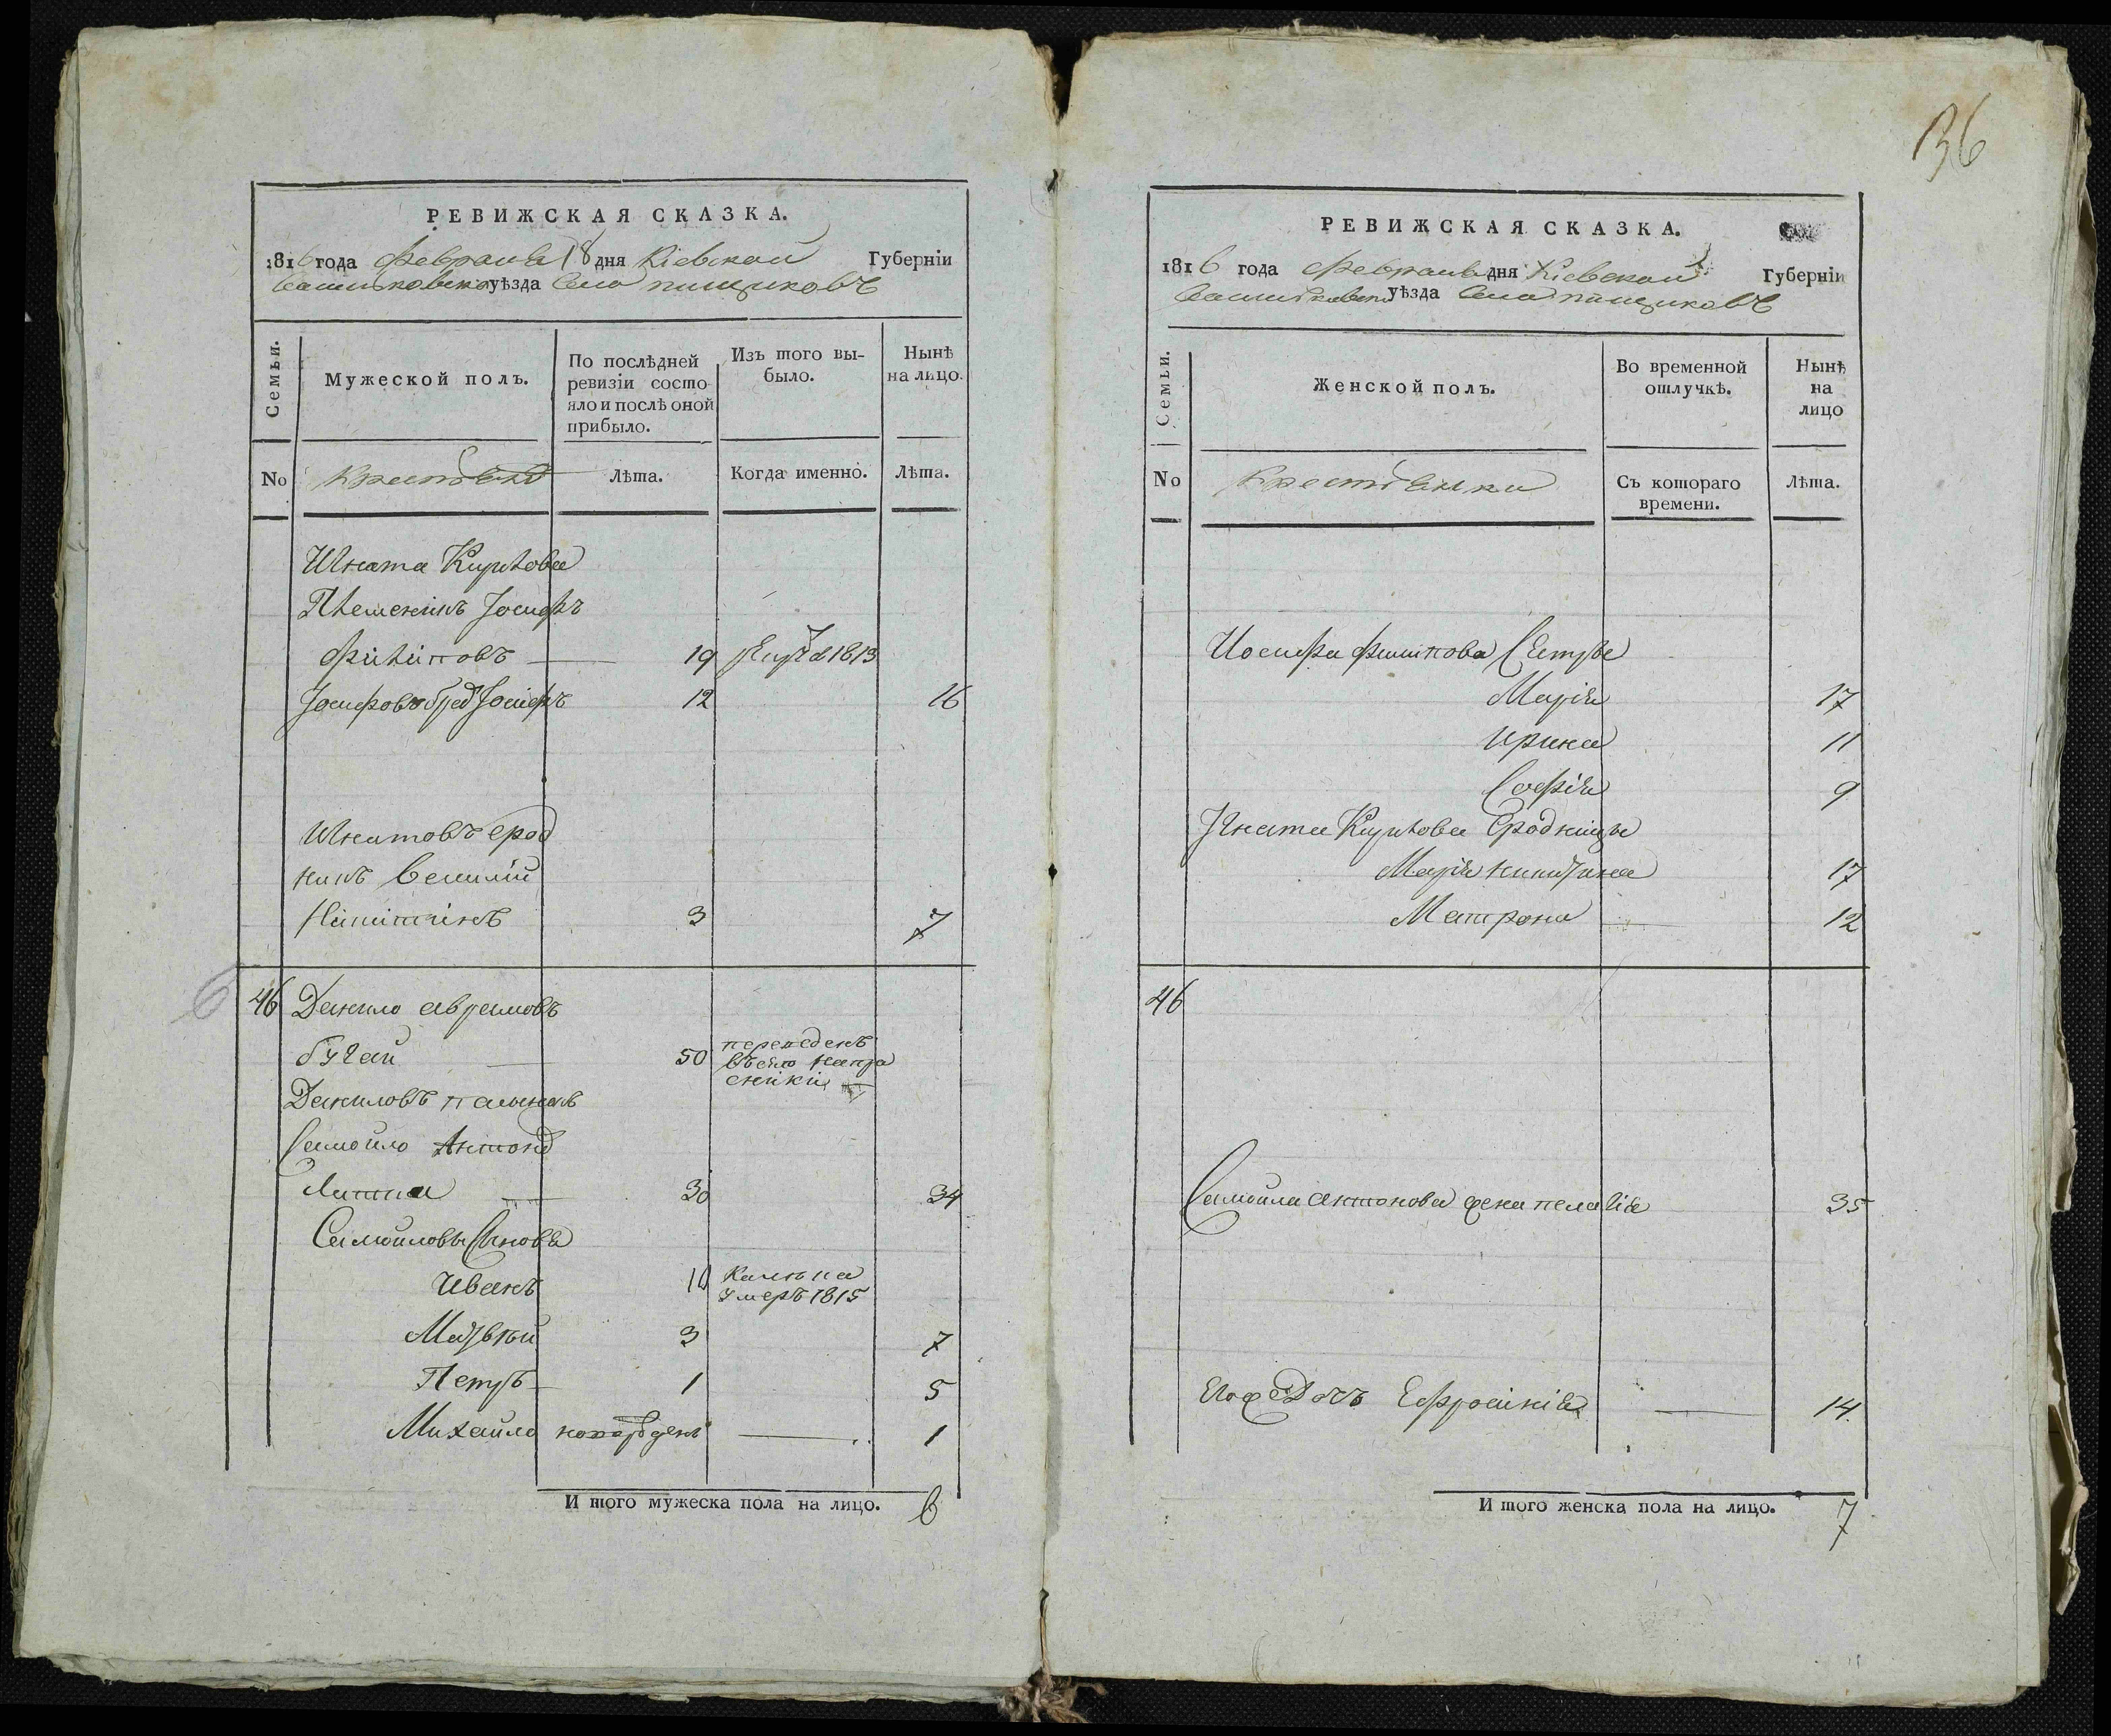 РЕВИЖСКАЯ СКАЗКА.
1816 года февраля 18 дня Кіевской Губерніи
уѣзда Село пищиковъ
Семьи.
Мужеской полъ.
По послѣдней ревизіи состояло и послѣ оной прибыло.
Изъ того выбыло.
Нынѣ на лицо.
No
Лѣта.
Когда именно.
Лѣта.
Игната Кирилова
Племеникъ Іосифъ
Филиповъ 19 1813
Іосифовъ братъ Іосифъ 12 16
Игнатовъ срод
никъ Василій
Никитинъ 3 7
46 Данило аврамовъ
бугай 50 переведенъ
въ село
Даниловъ
Самойло Антоновъ
30 34
Самойловы Сыновья
Иванъ 10
умеръ 1815
Матвѣй 3 7
Петръ 1 5
Михайло новорожденъ 1
И того мужеска пола на лицо. 6
136
РЕВИЖСКАЯ СКАЗКА.
1816 года февраля дня Кіевской Губерніи
уѣзда Села пищиковъ
Семьи.
Женской полъ.
Во временной отлучкѣ.
Нынѣ на лицо
No
Крестьянки
Съ котораго времени.
Лѣта.
Иосифа филипова Сестры
Марія 17
Ирина 11
Софія 9
Игната Кирилова Сродницы
Марія никитина 17
Матрона 12
46
Самойла антонова жена пелагія 35
Его ж Дочь Ефросинія 14
И того женска пола на лицо. 7